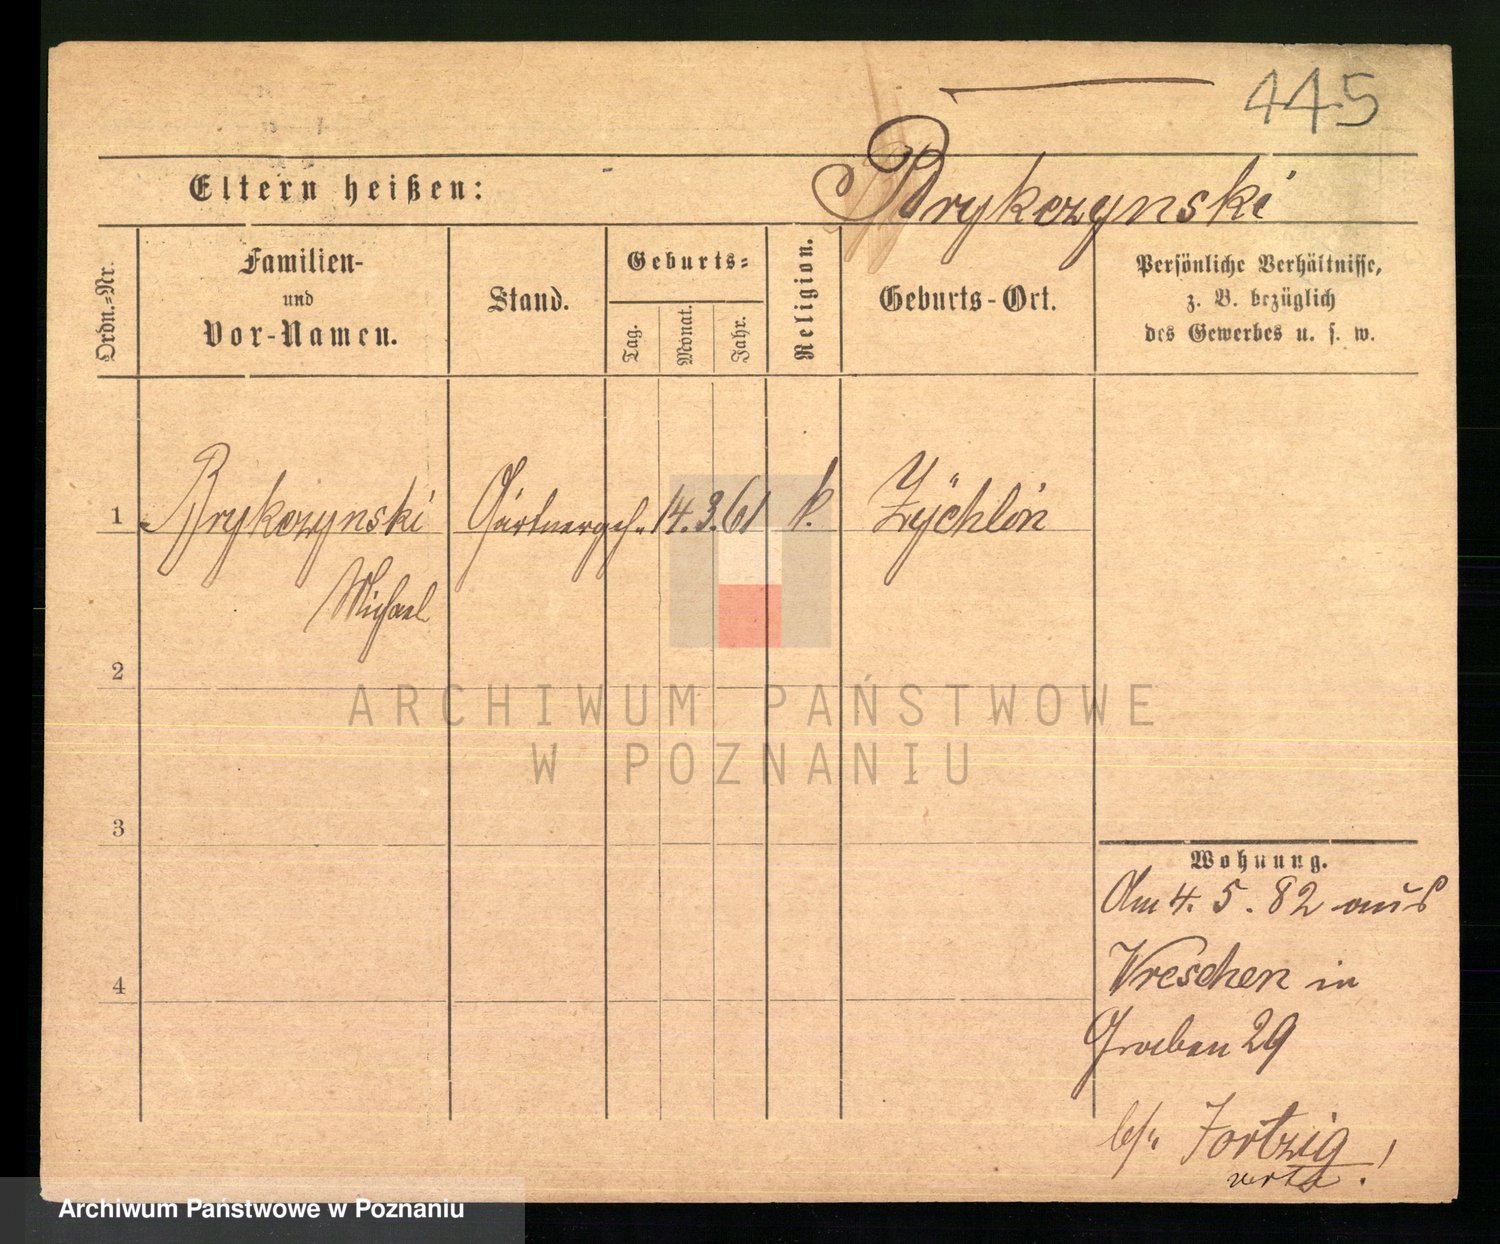 445
Eltern heißen:
Brykczynski
Ordn.=Nr.
Familien-
und
Vor-Namen.
Stand.
Geburts=
Tag.
Monat.
Jahr.
Religion.
Geburts-Ort.
Persönliche Verhältnisse,
z. B. bezüglich
des Gewerbes u. s. w.
1 Brykczynski Gärtnergeh. 14. 3. 61 k. Zÿchlin
Michael
2
ARCHIWUM PAŃSTWOWE
W POZNANIU
3
Wohnung.
Am 4. 5. 82 aus
Wreschen in
4
Graben 29
bei
verta!
Archiwum Państwowe w Poznaniu